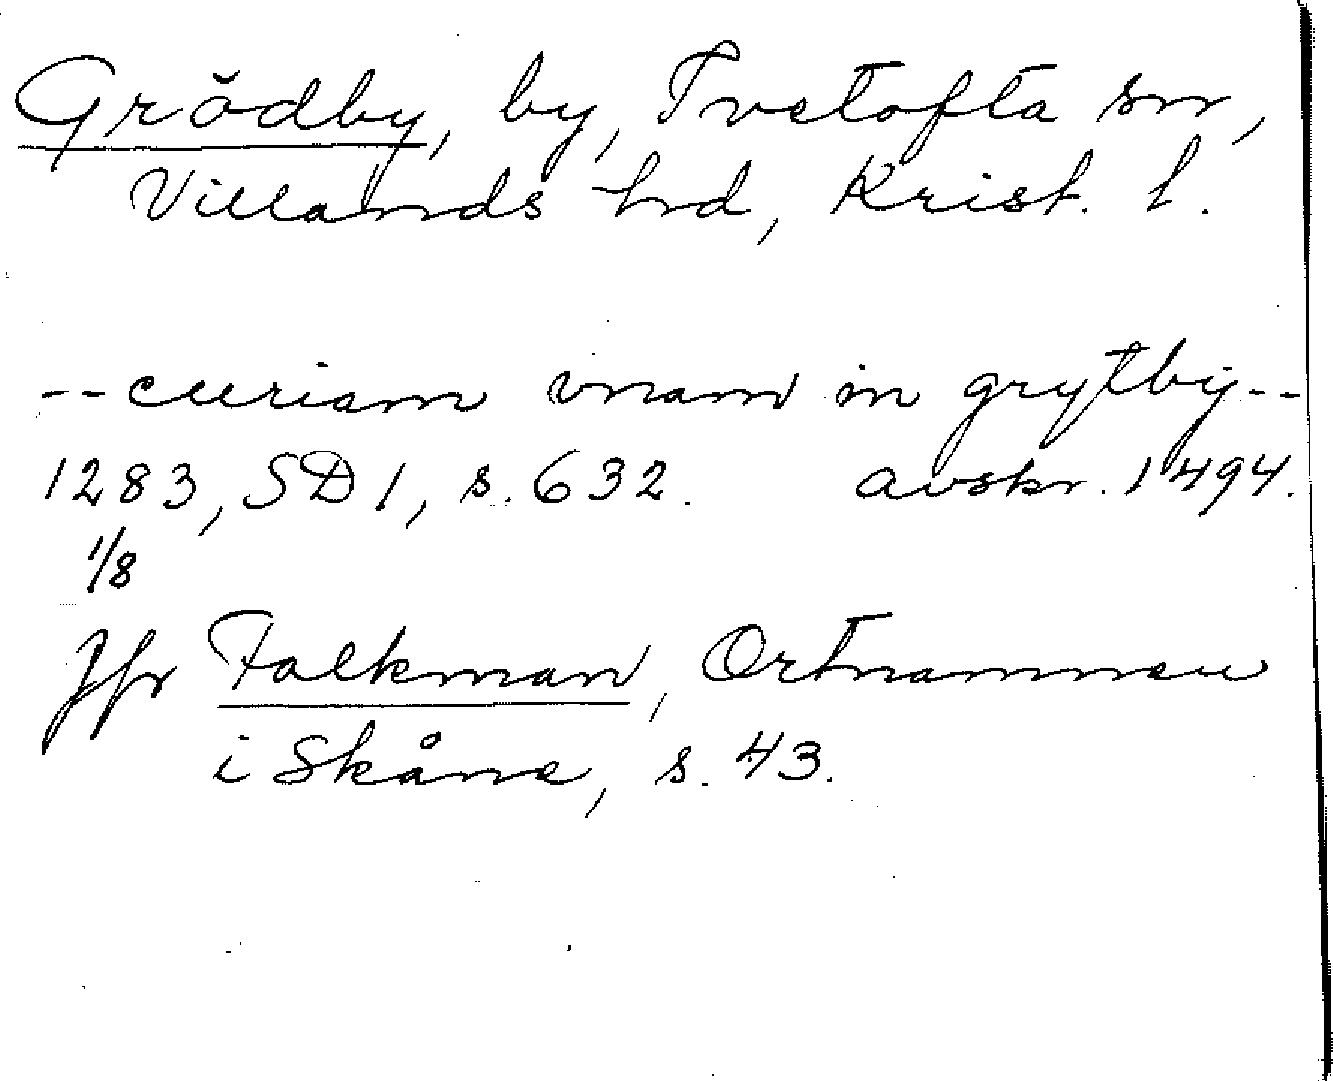 Grödby, by, Tvetofta sn,
Villands hd, Krist. l.
-- curiam vnam in grytby --
1283, SD 1, s. 632. avskr. 1494.
1/8
Jfr Falkman, Ortnamnen
i Skåne, s. 43.